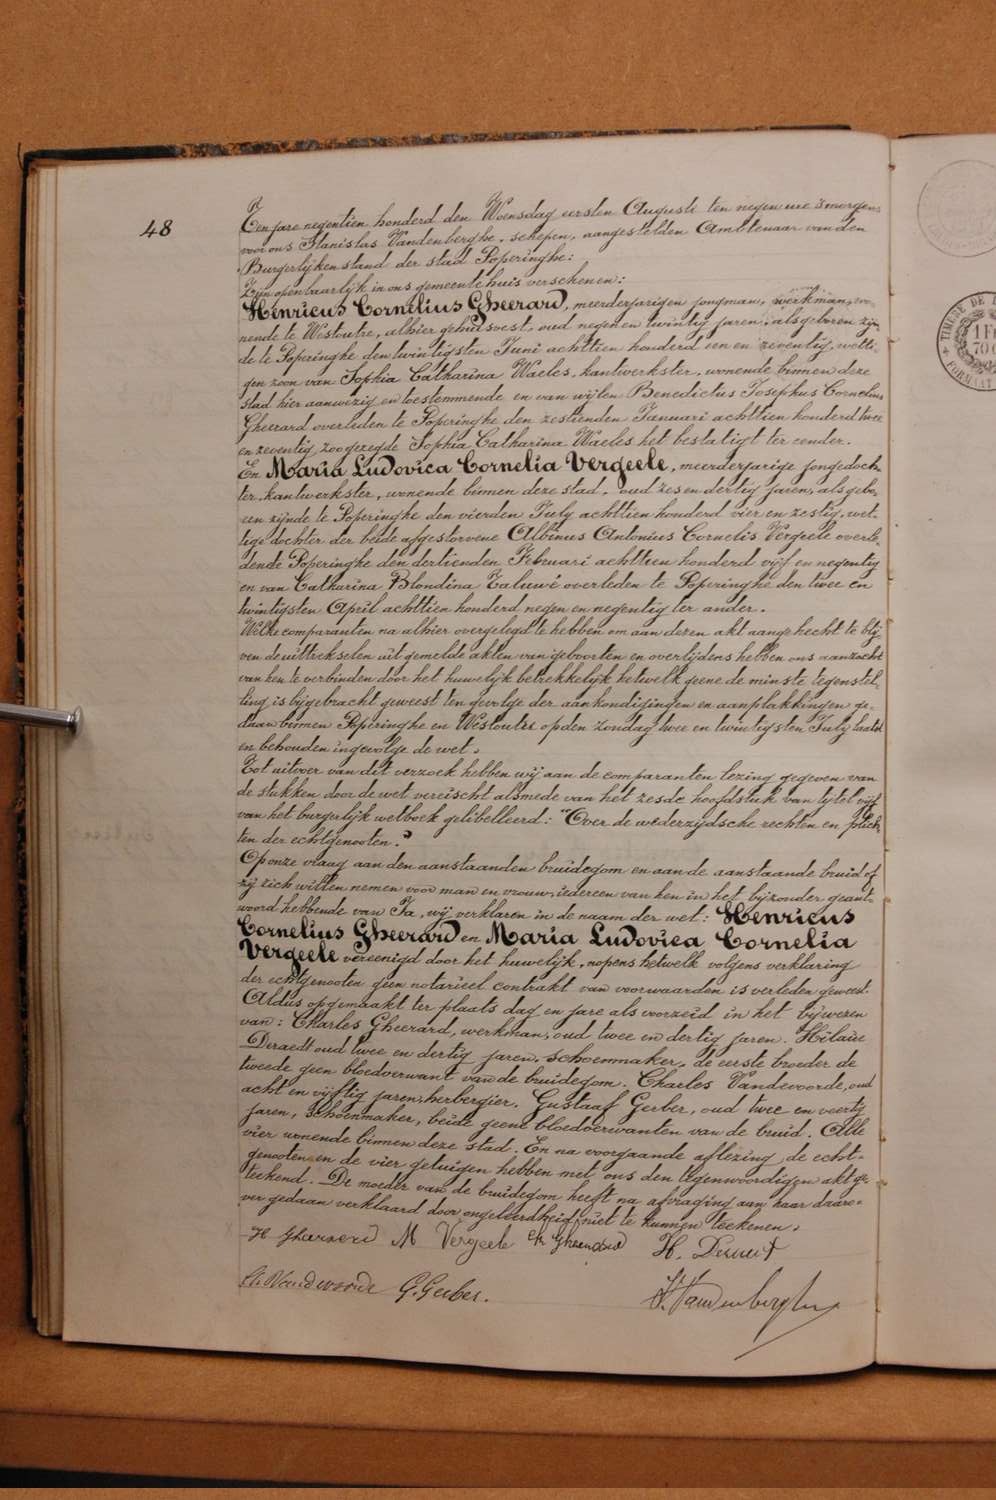 48
Een jare negentien honderd den Woensdag eersten Augusti ten negen ure 's morgens
voor ons Stanislas Vandenberghe, schepen, aangestelden Ambtenaar van den
Burgerlijken stand der stad Poperinghe:
Zijn openbaarlijk in ons gemeentehuis verschenen:
Henricus Cornelius Gheerard, meerderjarigen jongman, werkman, wo-
nende te Westoutre, alhier gehuisvest, oud negen en twintig jaren, als geboren zijn
de te Poperinghe den twintigsten Juni achttien honderd een en zeventig, wetti-
gen zoon van Sophia Catharina Waeles, kantwerkster, wonende binnen deze
stad hier aanwezig en toestemmende en van wijlen Benedictus Josephus Cornelius
Gheerard overleden te Poperinghe den zestienden Januari achttien honderd twee
en zeventig, zoo gezegde Sophia Catharina Waeles het bestatigt ter eender.
En Maria Ludovica Cornelia Vergeele, meerderjarige jongedoch-
ter, kantwerkster, wonende binnen deze stad, oud zes en dertig jaren, als gebo-
ren zijnde te Poperinghe den vierden July achttien honderd vier en zestig, wet-
tige dochter der beide afgestorvene Albinus Antonius Cornelis Vergeele overle-
dende Poperinghe den dertienden Februari achttien honderd vijf en negentig
en van Catharina Blondina Taluwé overleden te Poperinghe den twee en
twintigsten April achttien honderd negen en negentig ter ander.
Welke comparanten na alhier overgelegd te hebben om aan dezen akt aangehecht te blij
ven de uittrekselen uit gemelde akten van geboorten en overlijdens hebben ons aanzocht
van hen te verbinden door het huwelijk betrekkelijk hetwelk geene de minste tegenstel-
ling is bijgebracht geweest ten gevolge der aankondigingen en aanplakkingen ge-
daan binnen Poperinghe en Westoutre op den zondag twee en twintigsten July laatst
en behouden ingevolge de wet.
Tot uitvoer van dit verzoek hebben wij aan de comparanten lezing gegeven van
de stukken door de wet vereischt alsmede van het zesde hoofdstuk van tytel vijf
van het burgerlijk wetboek gelibelleerd: "Over de wederzijdsche rechten en plich
ten der echtgenooten."
Op onze vraag aan den aanstaanden bruidegom en aan de aanstaande bruid of
zij zich willen nemen voor man en vrouw, iedereen van hen in het bijzonder geant-
woord hebbende van Ja, wij verklaren in de naam der wet: Henricus
Cornelius Gheerard en Maria Ludovica Cornelia
Vergeele vereenigd door het huwelijk, nopens hetwelk volgens verklaring
der echtgenooten geen notarieel contrakt van voorwaarden is verleden geweest.
Aldus opgemaakt ter plaats dag en jare als voorzeid in het bijwezen
van: Charles Gheerard, werkman, oud twee en dertig jaren. Hilaire
Deraedt oud twee en dertig jaren, schoenmaker, de eerste broeder de
tweede geen bloedverwant van de bruidegom. Charles Vandevoorde, oud
acht en vijftig jaren, herbergier. Gustaaf Gerber, oud twee en veertig
jaren, schoenmaker, beide geene bloedverwanten van de bruid. Alle
vier wonende binnen deze stad. En na voorgaande aflezing, de echt-
genooten en de vier getuigen hebben met ons den tegenwoordigen akt ge-
teekend. De moeder van de bruidegom heeft na afvraging aan haar daaro-
ver gedaan verklaard door ongeleerdheid niet te kunnen teekenen.
M Vergeele
G. Gerber.
TIMBRE DE